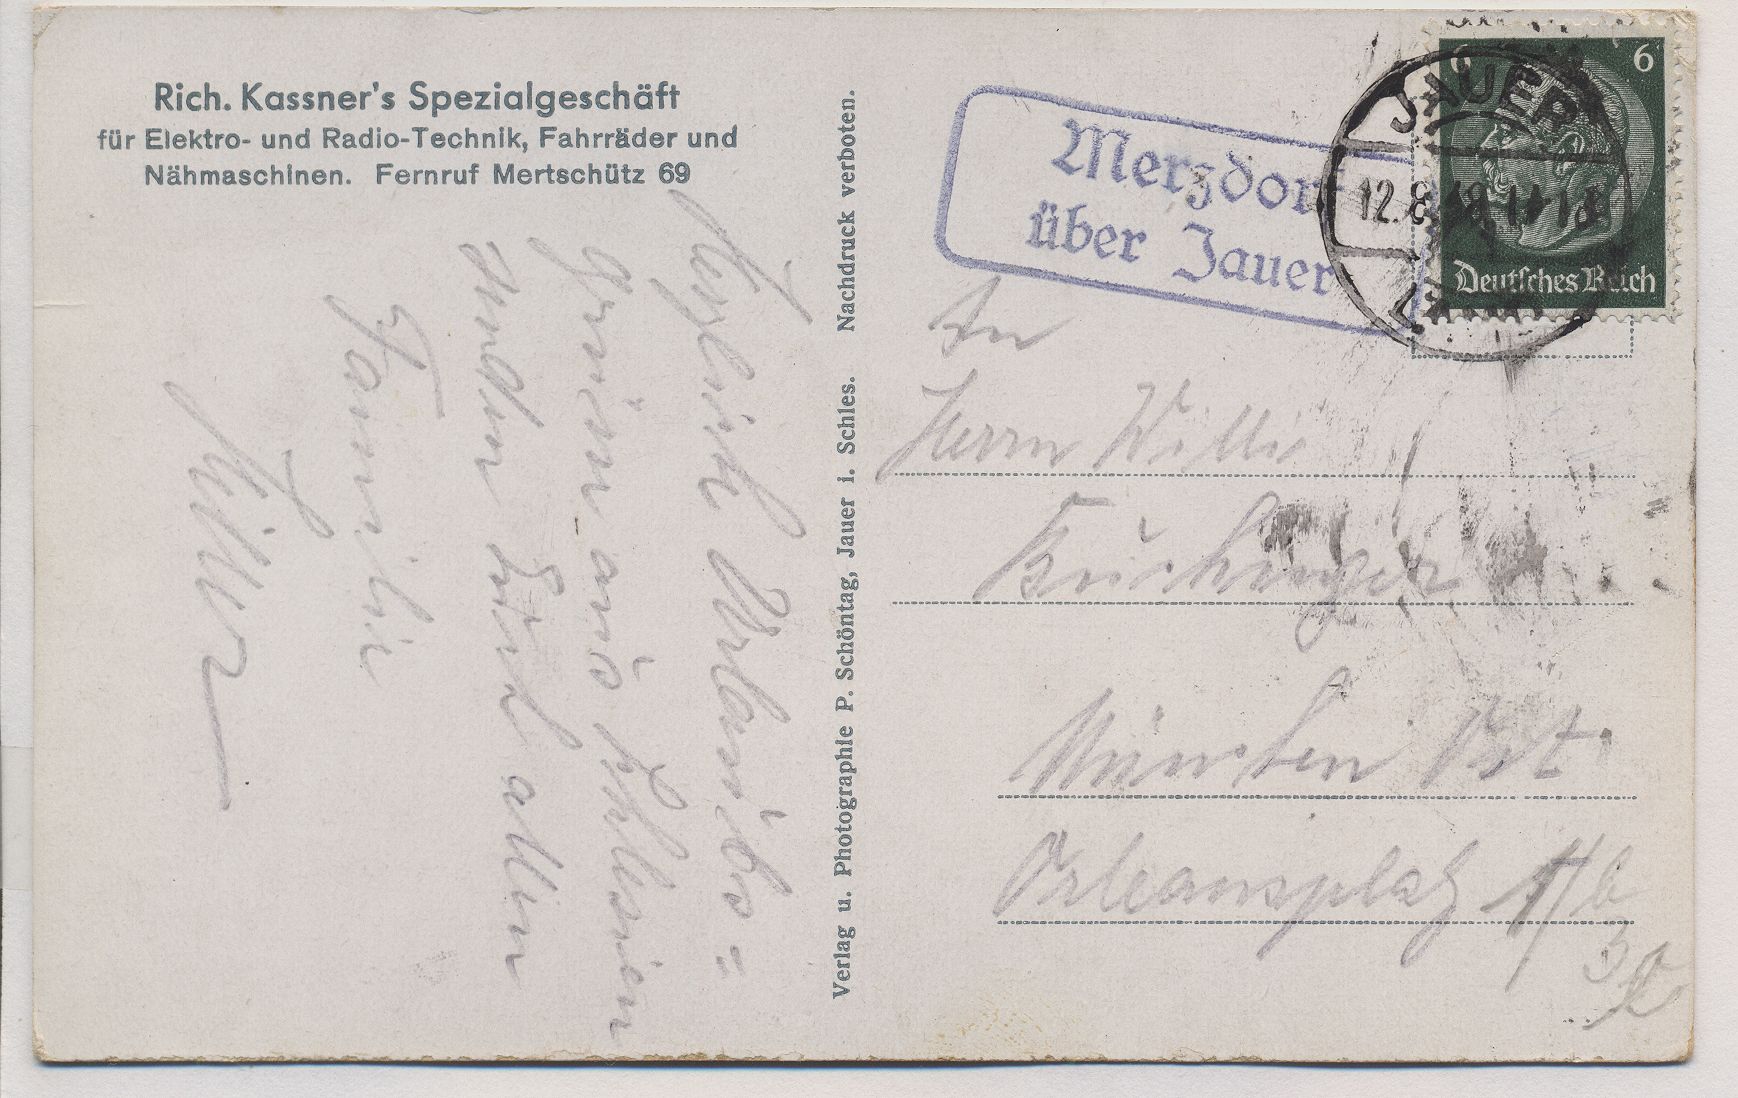 Rich. Kassner's Spezialgeschäft
für Elektro- und Radio-Technik, Fahrräder und
Nähmaschinen. Fernruf Mertschütz 69
Herzliche Urlaubs=
grüsse aus Schlesien
senden Euch allen
Familie
Verlag u. Photographie P. Schöntag, Jauer i. Schles. Nachdruck verboten.
Merzdorf
über Jauer
JAUER
12.8.
6 6
Deutsches Reich
An
Herrn Willi
München Ost
Orleansplatz